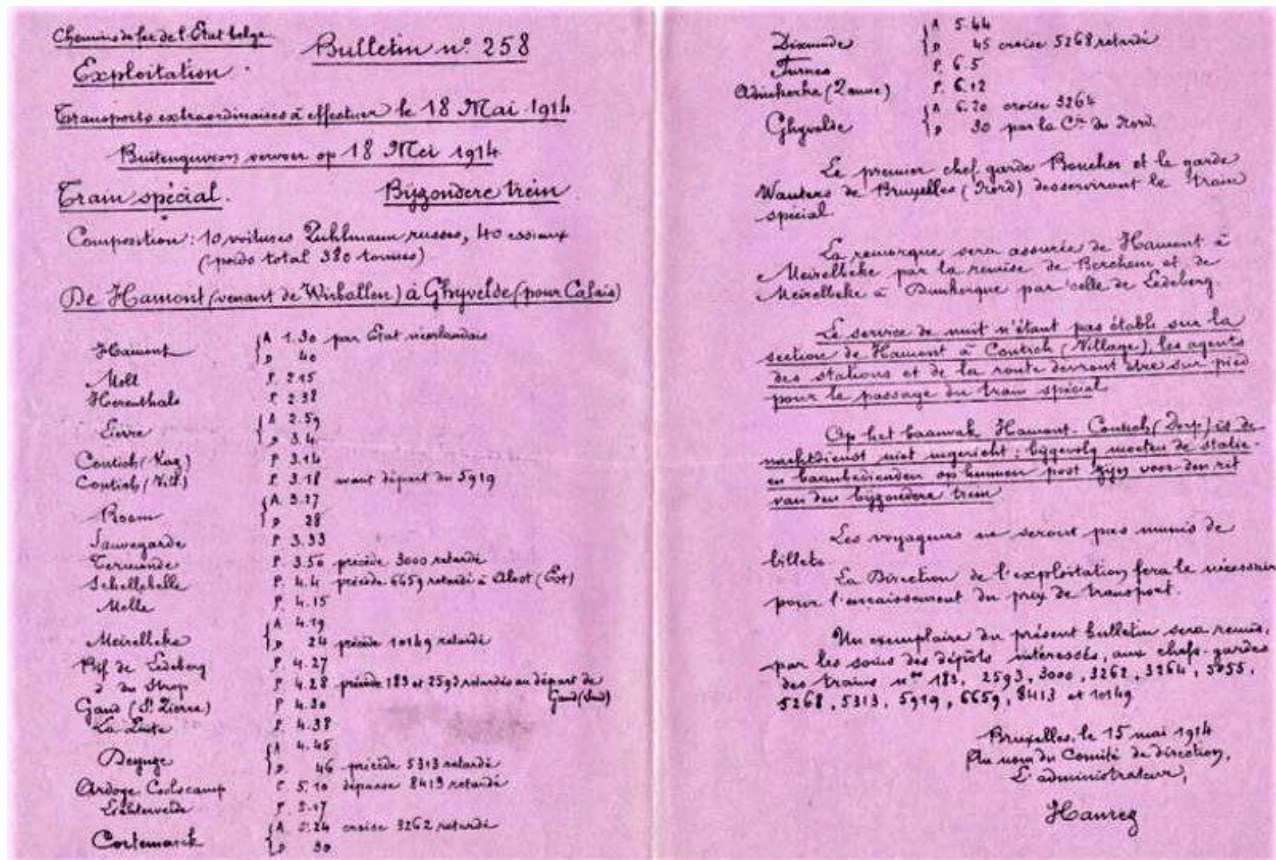 Chemins de fer de l'État belge
Exploitation.
Bulletin n° 258
Transports extraordinaires à effectuer le 18 Mai 1914
Buitengewoon vervoer op 18 Mei 1914
Train spécial. Byzondere trein
Composition : 10 voitures Ruhlmann russes, 40 essieux
(poids total 380 tonnes)
De Hamont (venant de Wirballen) à Ghyvelde (pour Calais)
Hamont { A 1.30 par État néerlandais
D 40
Moll P. 2.15
Herenthals P. 2.38
Lierre { A 2.59
D 3.4
Contich (Kaz) P. 3.14
Contich (Vill.) P. 3.18 avant départ du 5919
Boom { A. 3.27
D 28
Sauvegarde P. 3.33
Termonde P. 3.50 précède 3000 retardé
Schellebelle P. 4.4 précède 6659 retardé à Alost (Est)
Melle P. 4.15
Meirelbeke { A 4.19
D 24 précède 10149 retardé
Bif de Ledeberg P. 4.27
d° du Strop P. 4.28 précède 183 et 2593 retardés au départ de
Gand (Sud)
Gand (St. Pierre) P 4.30
La Lieste P. 4.38
Deynze { A 4.45
D 46 précède 5313 retardé
Ardoye Coolscamp P. 5.10 dépasse 8413 retardé
Lichtervelde P 5.17
Cortemarck { A 5.24 croise 3262 retardé
D 30
Dixmude { A 5.44
D 45 croise 5268 retardé
Furnes P. 6.5
Adinkerke (Panne) P. 6.12
Ghyvelde { A 6.20 croise 3264
D 30 par la Cie du Nord.
Le premier chef garde Boucher et le garde
Wauters de Bruxelles (Nord) desserviront le train
spécial.
La remorque sera assurée de Hamont à
Meirelbeke par la remise de Berchem et de
Meirelbeke à Dunkerque par celle de Ledeberg.
Le service de nuit n'étant pas établi sur la
section de Hamont à Contich (Village), les agents
des stations et de la route devront être sur pied
pour le passage du train spécial.
Op het baanvak Hamont-Contich (Dorp) is de
nachtdienst niet ingericht ; bijgevolg moeten de statie-
en baanbedienden op hunnen post zyn voor den rit
van den byzondere trein
Les voyageurs ne seront pas munis de
billets.
La Direction de l'exploitation fera le nécessaire
pour l'encaissement du prix de transport.
Un exemplaire du présent bulletin sera remis,
par les soins des dépôts intéressés, aux chefs-gardes
des trains nos 183, 2593, 3000, 3262, 3264, 5055,
5268, 5313, 5919, 6659, 8413 et 10149
Bruxelles, le 15 mai 1914
Au nom du Comité de direction,
L'administrateur,
Hanrez